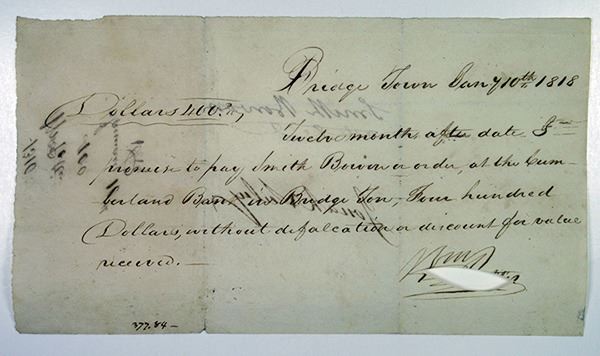 Bridge Town Jany 10th 1818
Dollars 400.
Twelve months after date I
promise to pay Smith Bowen or order, at the Cum-
berland Bank in Bridge Ton, Four hundred
Dollars, without defalcation or discount for value
received.—
377.84—